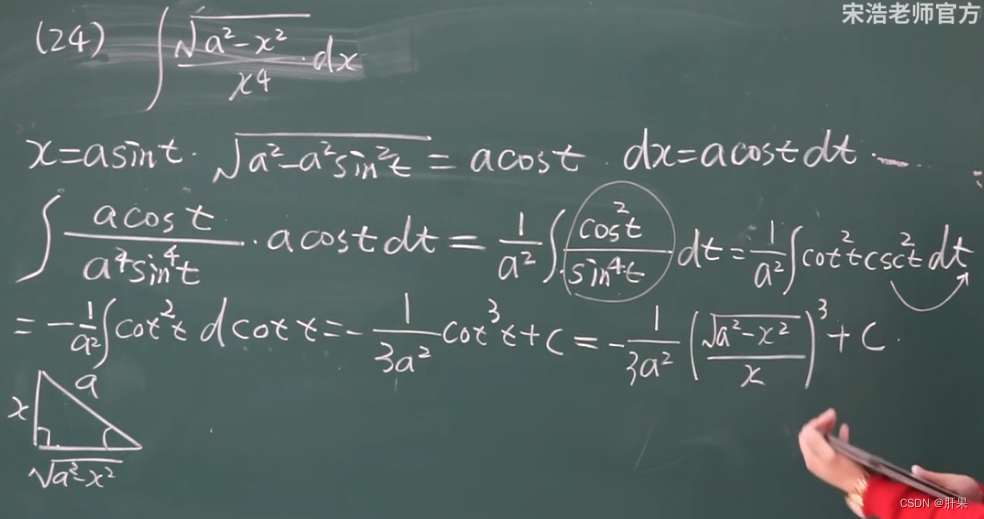 宋浩老师官方
(24) ∫ √(a²-x²)/x⁴ dx
x=asint. √(a²-a²sin²t) = acost. dx=acostdt.
∫ acost/(a⁴sin⁴t) · acostdt = 1/a² ∫ cos²t/sin⁴t dt = 1/a² ∫cot²tcsc²tdt
= -1/a² ∫cot²t dcott = -1/(3a²) cot³t+C = -1/(3a²) (√(a²-x²)/x)³+C.
a
x
√(a²-x²)
CSDN @肝果